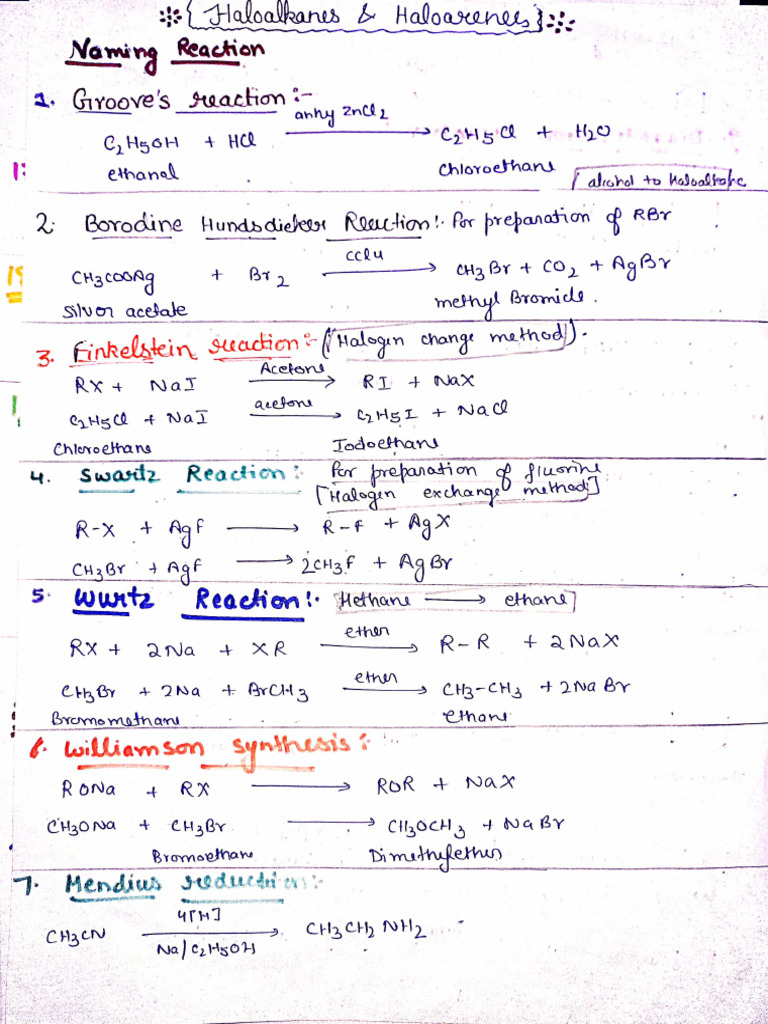 {Haloalkanes & Haloarenes}
Naming Reaction
1. Groove's reaction :-
C2H5OH + HCl anhy ZnCl2 → C2H5Cl + H2O
ethanol chloroethane [alcohol to Haloalkane
2. Borodine Hundsdiecker Reaction :- For preparation of RBr
CH3COOAg + Br2 CCl4 → CH3Br + CO2 + AgBr
Silver acetate methyl Bromide.
3. Finkelstein reaction :- (Halogen change method).
RX + NaI Acetone → RI + NaX
C2H5Cl + NaI acetone → C2H5I + NaCl
Chloroethane Iodoethane
4. Swartz Reaction :- For preparation of fluorine
[Halogen exchange method]
R-X + Agf → R-f + AgX
CH3Br + Agf → 2CH3f + AgBr
5. Wurtz Reaction :- [Methane → ethane]
RX + 2Na + XR ether → R-R + 2NaX
CH3Br + 2Na + BrCH3 ether → CH3-CH3 + 2NaBr
Bromomethane ethane
6. Williamson synthesis :-
RONa + RX → ROR + NaX
CH3ONa + CH3Br → CH3OCH3 + NaBr
Bromoethane Dimethylether
7. Mendius reduction :-
CH3CN 4[H] → CH3CH2NH2
Na/C2H5OH